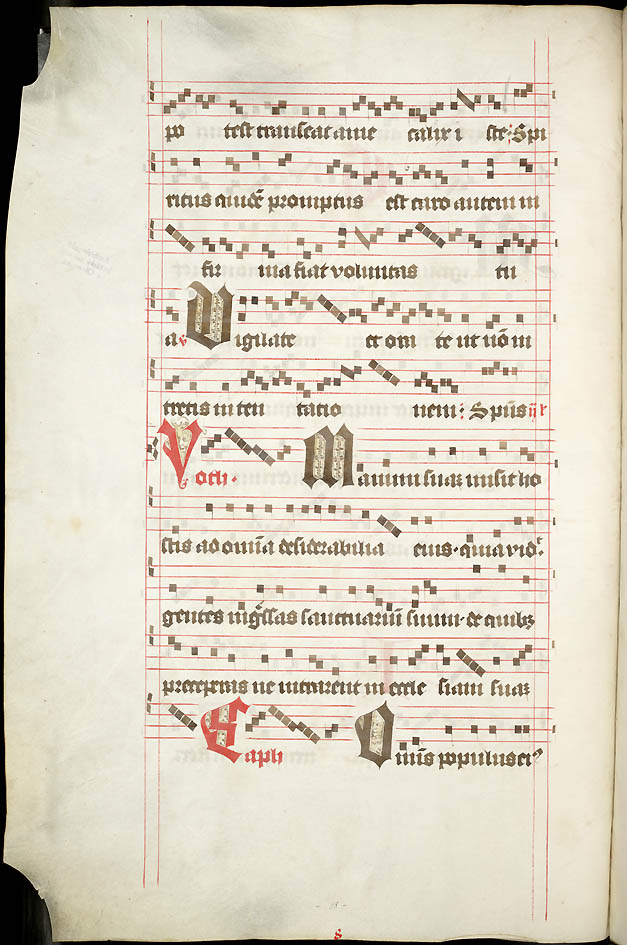 po test transeat a me calix i ste Spi
ritus quidē promptus est caro autem in
fir ma fiat voluntas tu
a v Vigilate et om te ut nō in
tretis in ten tatio nem: Sp̄us
Ioth. Manum suaz misit ho
stis ad omīa desiderabilia eius. quia vid
gentes īgssas sanctuariū suum. de quibz
preceperas ne intrarent in eccle siam suaz
Caph Omīs populus ei